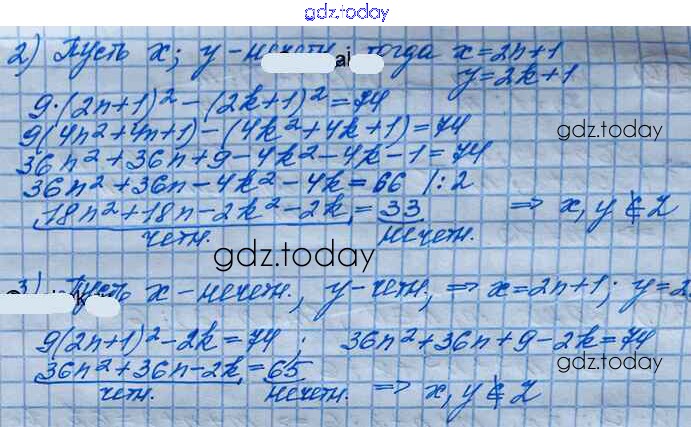 gdz.today
2) Пусть x; y - нечетн. тогда x=2n+1
y=2k+1
9·(2n+1)²-(2k+1)²=74
9(4n²+4n+1)-(4k²+4k+1)=74
gdz.today
36n²+36n+9-4k²-4k-1=74
36n²+36n-4k²-4k=66 |:2
18n²+18n-2k²-2k=33 => x,y∉Z
четн. нечетн.
gdz.today
3) Пусть x-нечетн., y-четн, => x=2n+1; y=2
9(2n+1)²-2k=74; 36n²+36n+9-2k=74
gdz.today
36n²+36n-2k=65 => x,y∉Z
четн. нечетн.